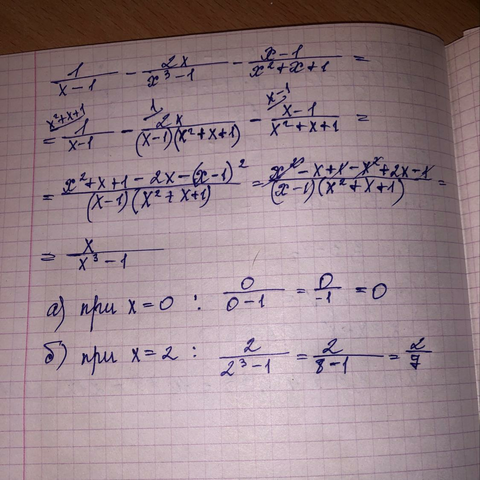 1/(x-1) - 2x/(x³-1) - (x-1)/(x²+x+1) =
= 1/(x-1) (x²+x+1) - 2x/((x-1)(x²+x+1)) (1) - (x-1)/(x²+x+1) (x-1) =
= (x²+x+1-2x-(x-1)²)/((x-1)(x²+x+1)) = (x²-x+1-x²+2x-1)/((x-1)(x²+x+1)) =
= x/(x³-1)
а) при x=0 : 0/(0-1) = 0/-1 = 0
б) при x=2 : 2/(2³-1) = 2/(8-1) = 2/7